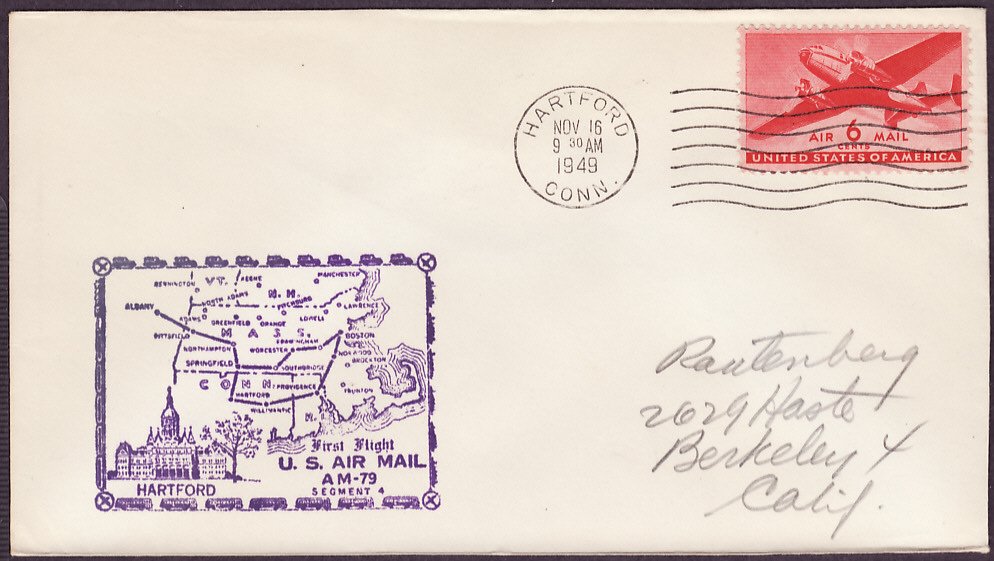 HARTFORD
NOV 16
9 30 AM
1949
CONN.
AIR 6 MAIL
CENTS
UNITED STATES OF AMERICA
BENNINGTON VT. KEENE MANCHESTER
NORTH ADAMS N. H. FITCHBURG LAWRENCE
ALBANY ADAMS GREENFIELD ORANGE LOWELL
PITTSFIELD M A S S. BOSTON
NORTHAMPTON WORCESTER FRAMINGHAM NORWOOD
SPRINGFIELD SOUTHBRIDGE BROCKTON
C O N N. PROVIDENCE TAUNTON
HARTFORD
WILLIMANTIC R.
First Flight
U. S. AIR MAIL
AM-79
SEGMENT 4
HARTFORD
Rautenberg
2029 Haste
Berkeley 4
Calif.